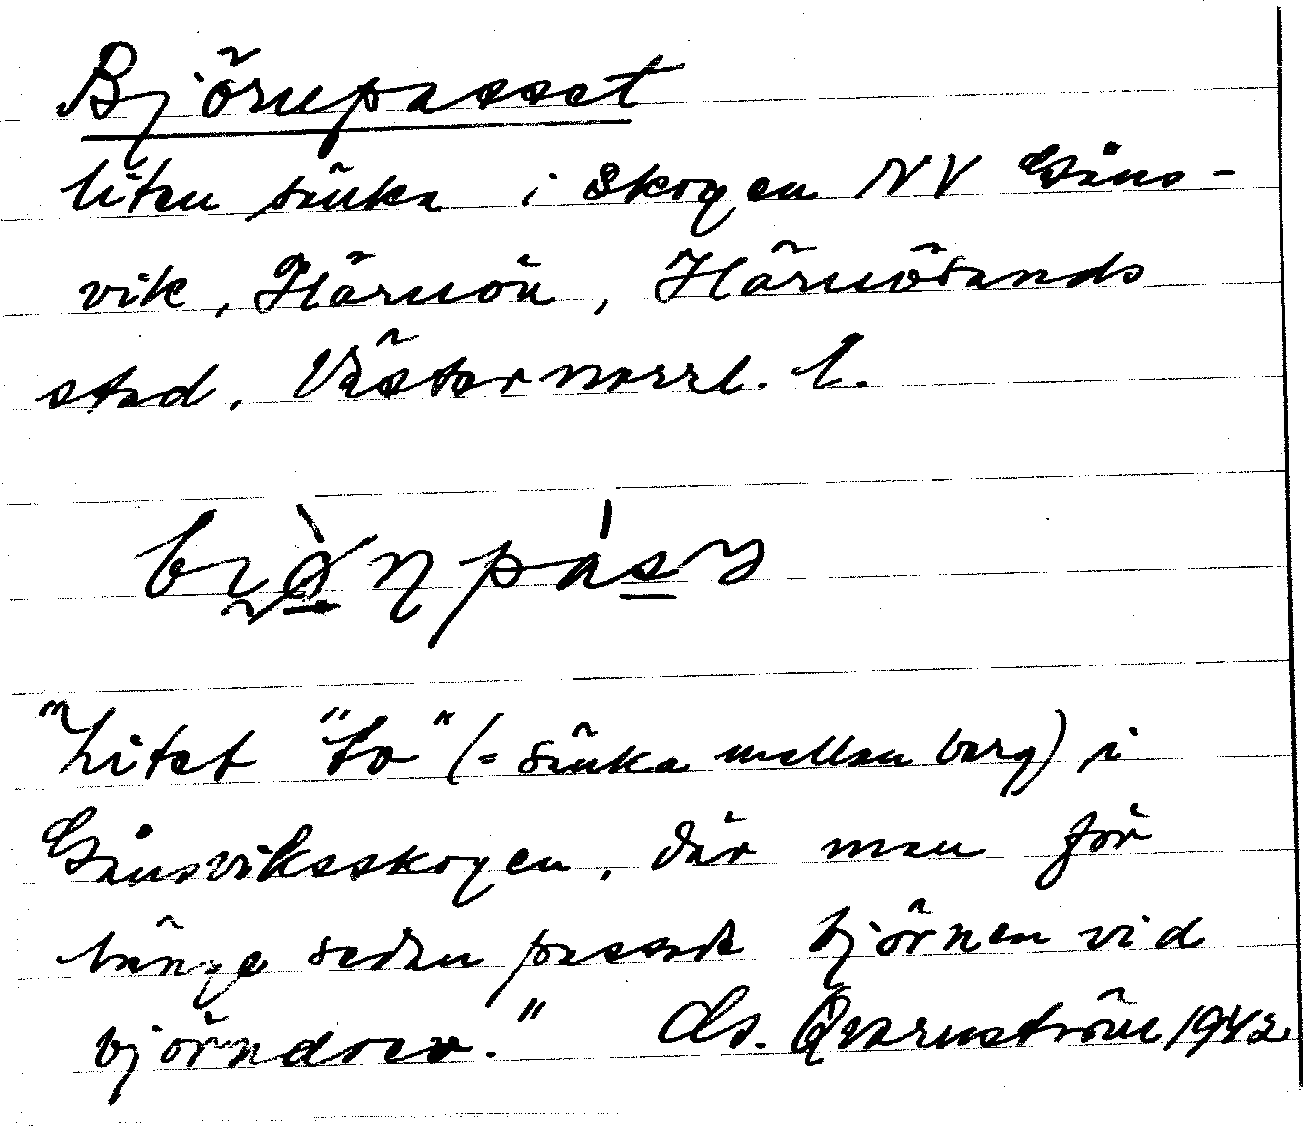 Björnpasset
liten sänka i skogen NV Gåns-
vik, Härnön, Härnösands
stad, Västernorrl. l.
"Litet "to" (= sänka mellan berg) i
Gånsviksskogen, där man för
länge sedan passade björnen vid
björndrev." Qvarnström 1942